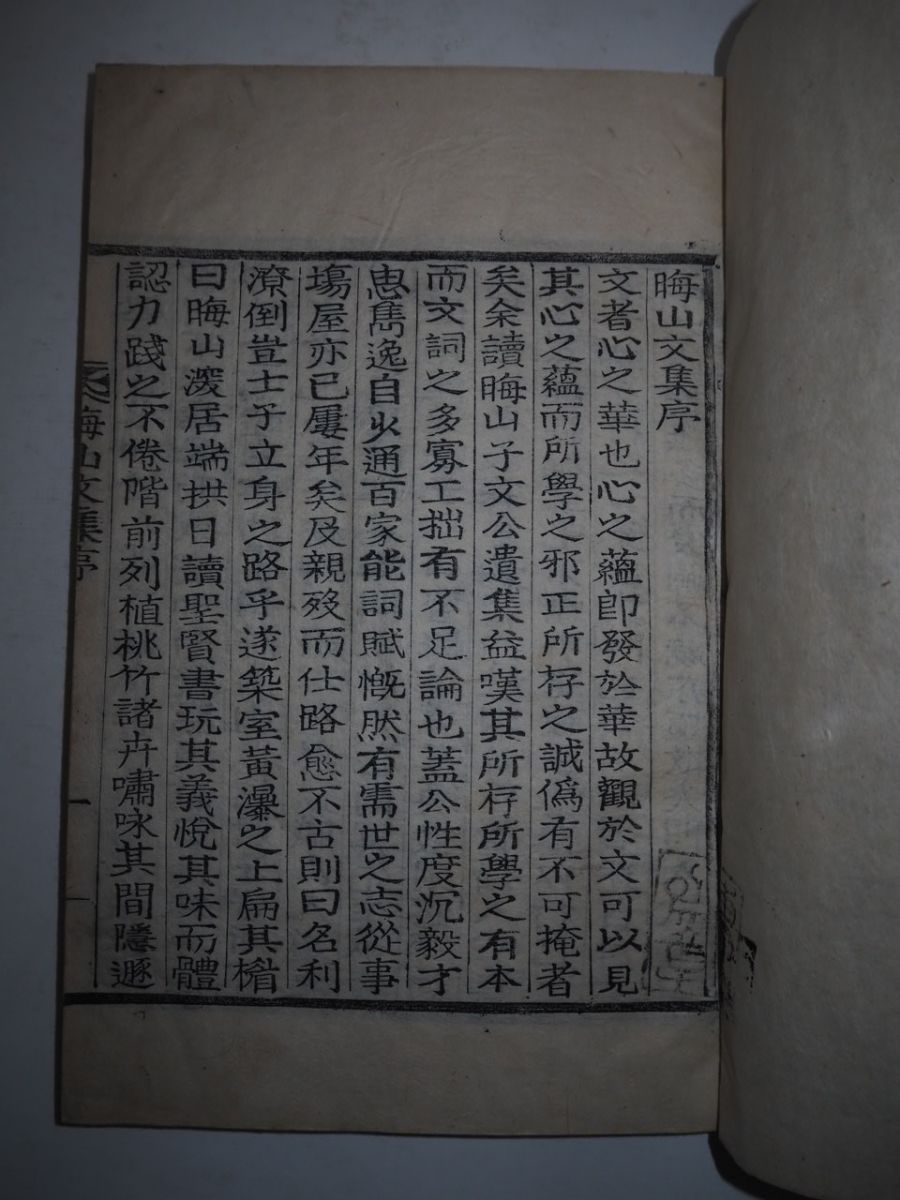 晦山文集序
文者心之華也心之蘊卽發於華故觀於文可以見
其心之蘊而所學之邪正所存之誠僞有不可掩者
矣余讀晦山子文公遺集益嘆其所存所學之有本
而文詞之多寡工拙有不足論也蓋公性度沉毅才
思雋逸自少通百家能詞賦慨然有需世之志從事
塲屋亦已屢年矣及親歿而仕路愈不古則曰名利
潦倒豈士子立身之路乎遂築室黃瀑之上扁其楣
曰晦山深居端拱日讀聖賢書玩其義悅其味而體
認力踐之不倦階前列植桃竹諸卉嘯咏其間隱遯
晦山文集序
一